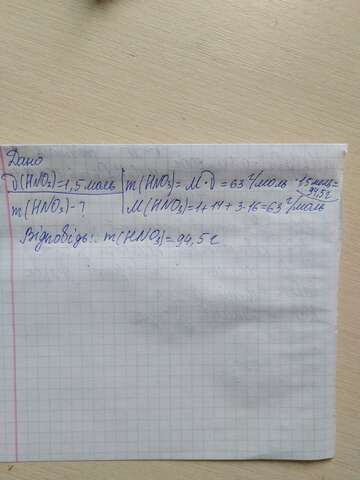 Дано
ν(HNO₃)=1,5моль | m(HNO₃)=M·ν=63 г/моль ·1,5моль=
94,5г
m(HNO₃)-? | M(HNO₃)=1+14+3·16=63 г/моль
Відповідь: m(HNO₃)=94,5г